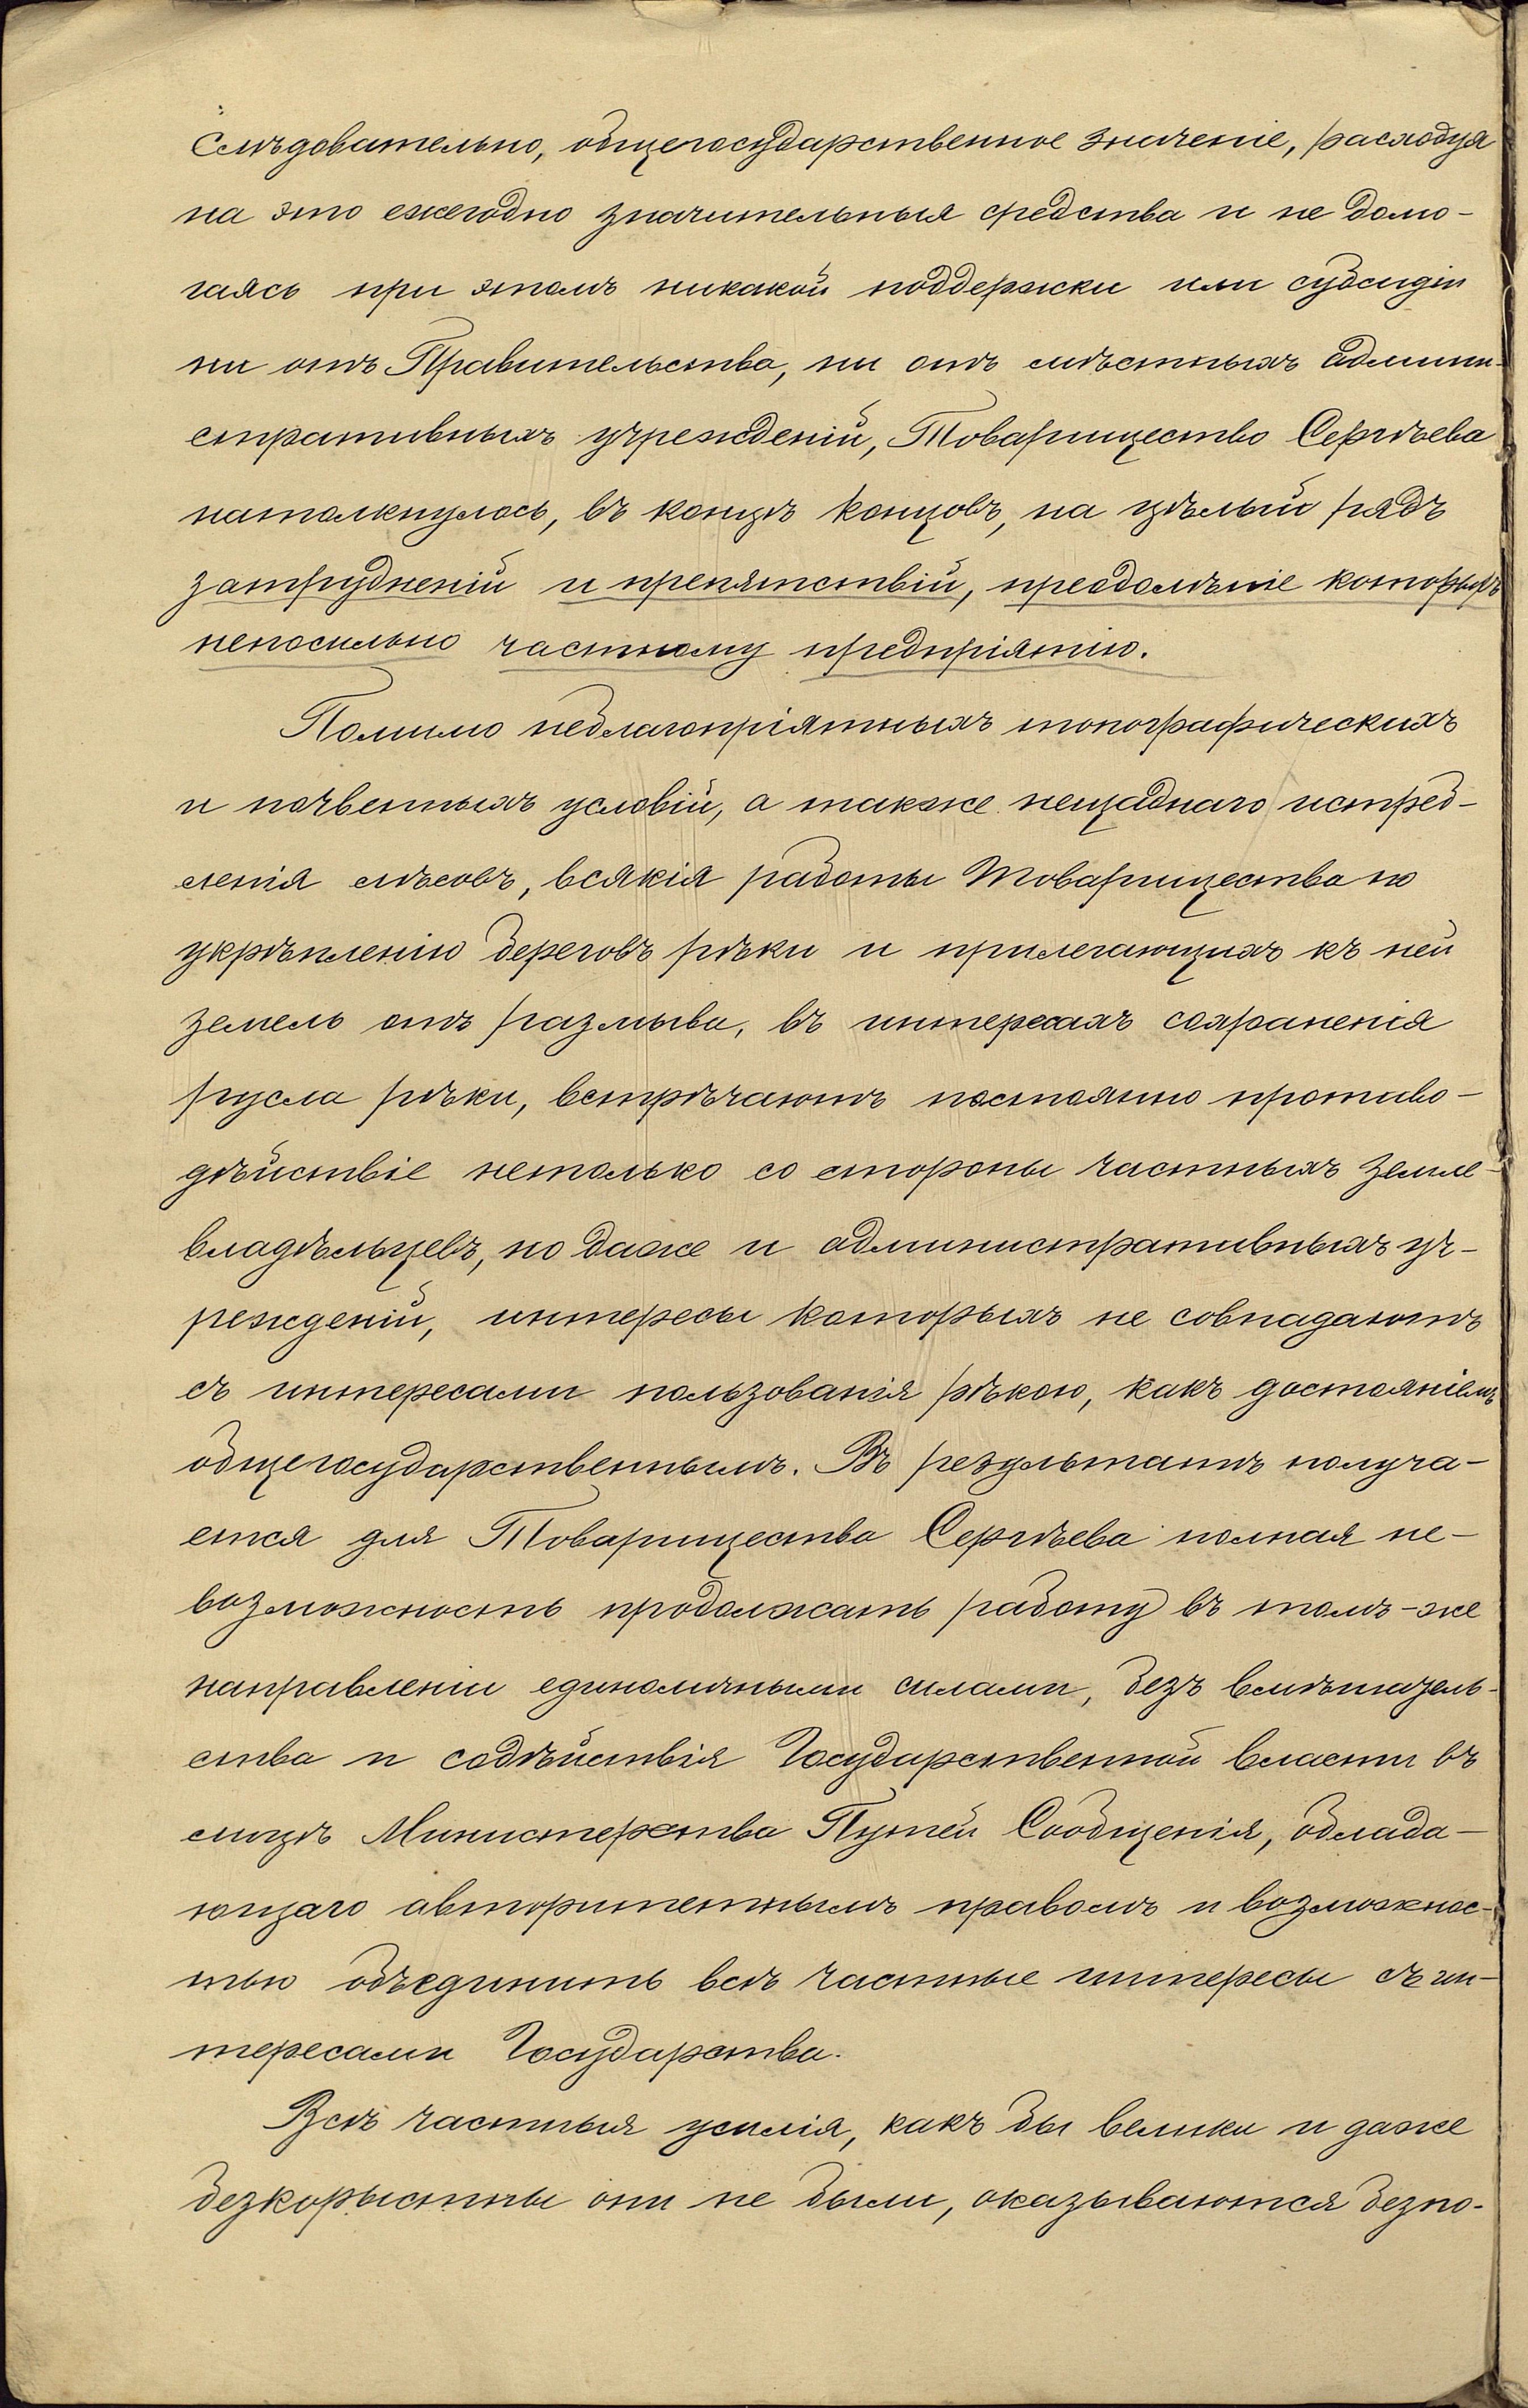 Слѣдовательно, общегосударственное значеніе, расходуя
на это ежегодно значительныя средства и не домо-
гаясь при этомъ никакой поддержки или субсидіи
ни отъ Правительства, ни отъ мѣстныхъ админи-
стративныхъ учрежденій, Товарищество Сергѣева
натолкнулось, въ концѣ концовъ, на цѣлый рядъ
затрудненій и препятствій, преодолѣніе которыхъ
непосильно частному предпріятію.
Помимо неблагопріятныхъ топографическихъ
и почвенныхъ условій, а также нещаднаго истреб-
ленія лѣсовъ, всякія работы Товарищества по
укрѣпленію береговъ рѣки и прилегающихъ къ ней
земель отъ размыва, въ интересахъ сохраненія
русла рѣки, встрѣчаютъ постоянно противо-
дѣйствіе нетолько со стороны частныхъ земле-
владѣльцевъ, но даже и административныхъ уч-
режденій, интересы которыхъ не совпадаютъ
съ интересами пользованія рѣкою, какъ достояніемъ
общегосударственнымъ. Въ результатѣ получа-
ется для Товарищества Сергѣева полная не-
возможность продолжать работу въ томъ-же
направленіи единоличными силами, безъ вмѣшатель-
ства и содѣйствія Государственной власти въ
лицѣ Министерства Путей Сообщенія, облада-
ющаго авторитетнымъ правомъ и возможнос-
тью объединить всѣ частные интересы съ ин-
тересами Государства.
Всѣ частныя усилія, какъ бы велики и даже
безкорыстны они не были, оказываются безпо-